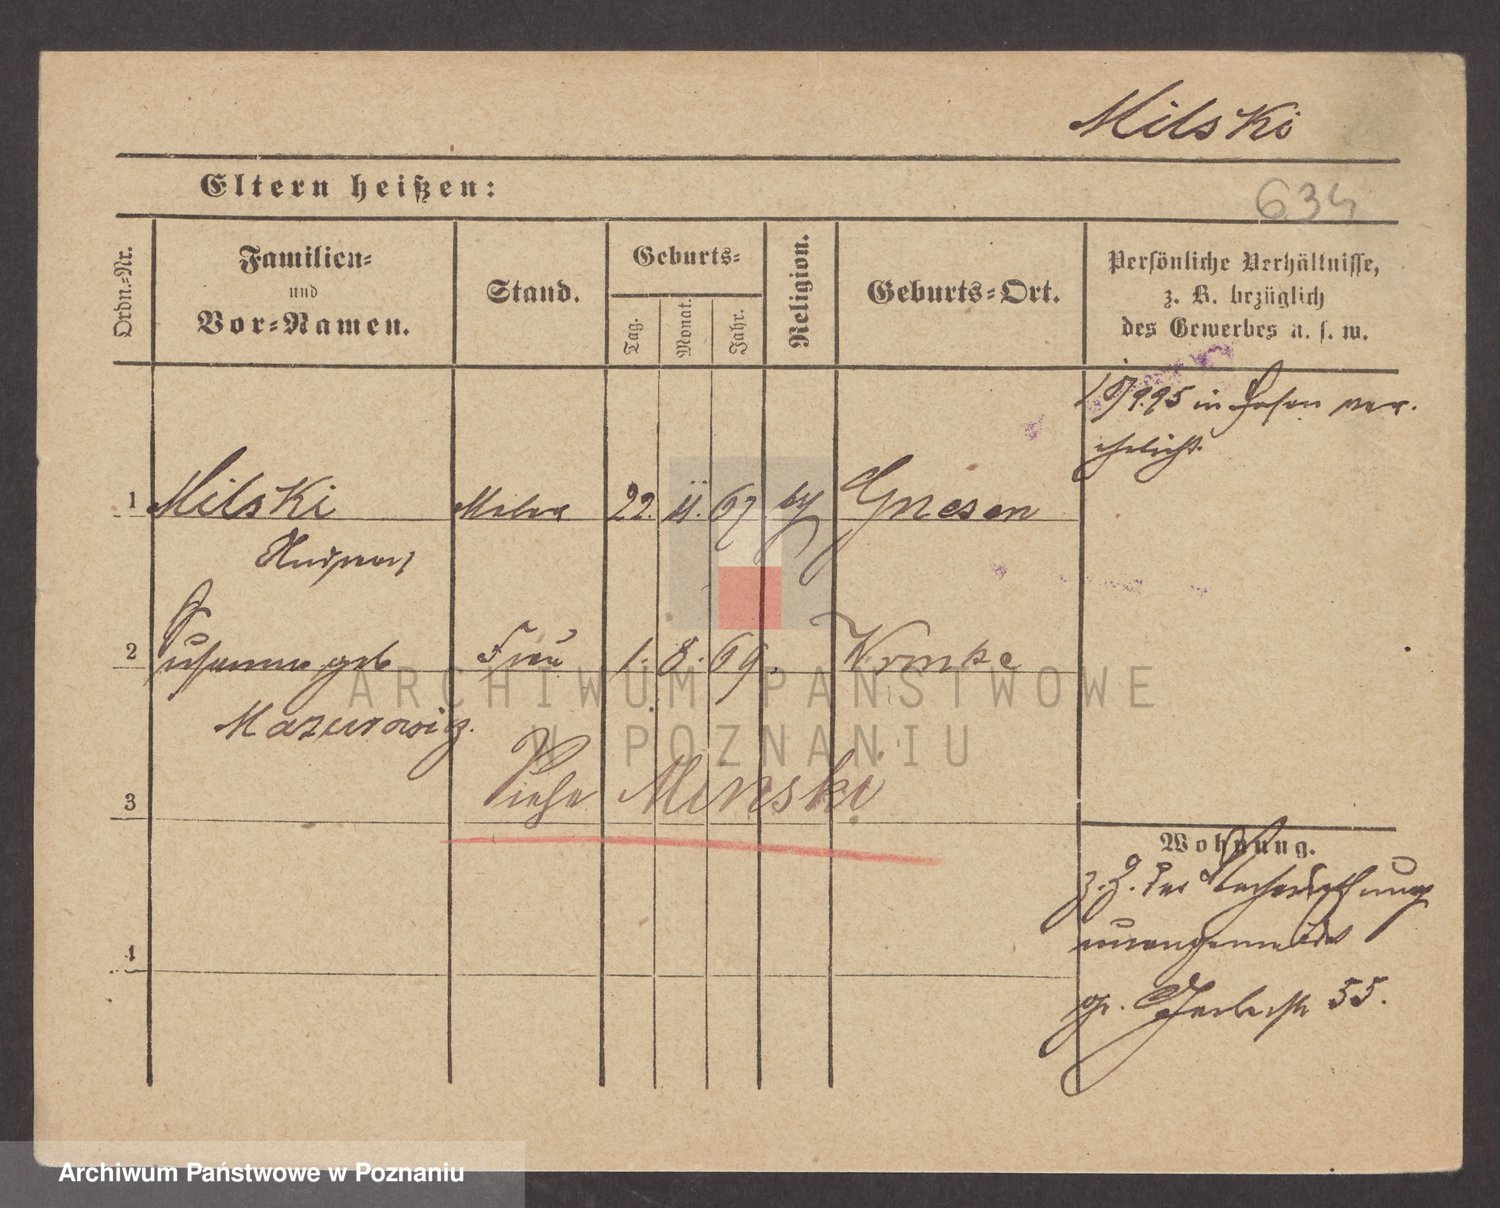 Milski
Eltern heißen:
634
Ordn.-Nr.
Familien-
und
Vor-Namen.
Stand.
Geburts-
Tag.
Monat.
Jahr.
Religion.
Geburts-Ort.
Persönliche Verhältnisse,
z. B. bezüglich
des Gewerbes u. s. w.
9.95 in Posen ver-
ehelicht.
1 Milski Maler 22. 11. 67 Gnesen
Andreas
2 Susanna geb Frau 1. 8. 69. Wronke
Mazurowicz.
3 Siehe Minski
Wohnung.
z. Z. der
unangemeldet
55.
4
ARCHIWUM PAŃSTWOWE
W POZNANIU
Archiwum Państwowe w Poznaniu